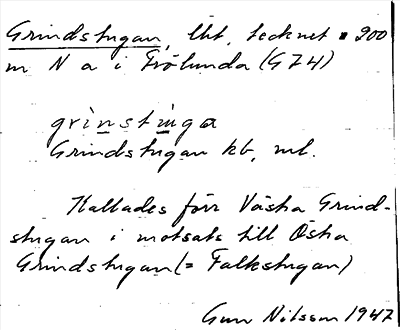 Grindstugan, lht, tecknet ▪ 200
m N a i Frölunda (G 74)
grìnstùga
Grindstugan kb, ml.
Kallades förr Västra Grind-
stugan i motsats till Östra
Grindstugan (= Falkstugan)
Gun Nilsson 1947